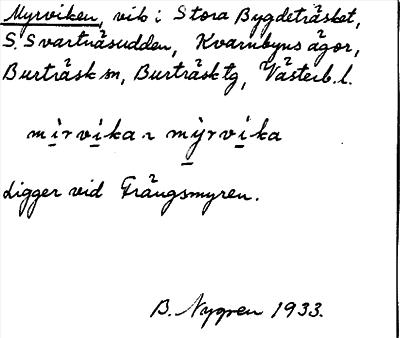 Myrviken, vik i Stora Bygdeträsket,
S. Svartnäsudden, Kvarnbyns ägor,
Burträsk sn, Burträsk tg, Västerb. l.
mìrvika ~ mỳrvika
Ligger vid Trångsmyren.
B. Nygren 1933.